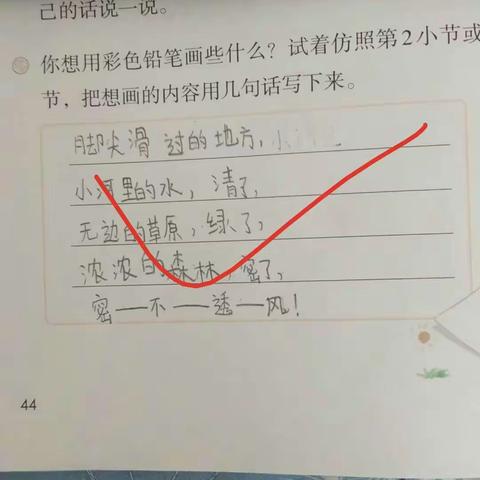 己的话说一说。
你想用彩色铅笔画些什么？试着仿照第2小节或
节，把想画的内容用几句话写下来。
脚尖滑过的地方，
小河里的水，清了，
无边的草原，绿了，
浓浓的森林，密了，
密——不——透——风！
44